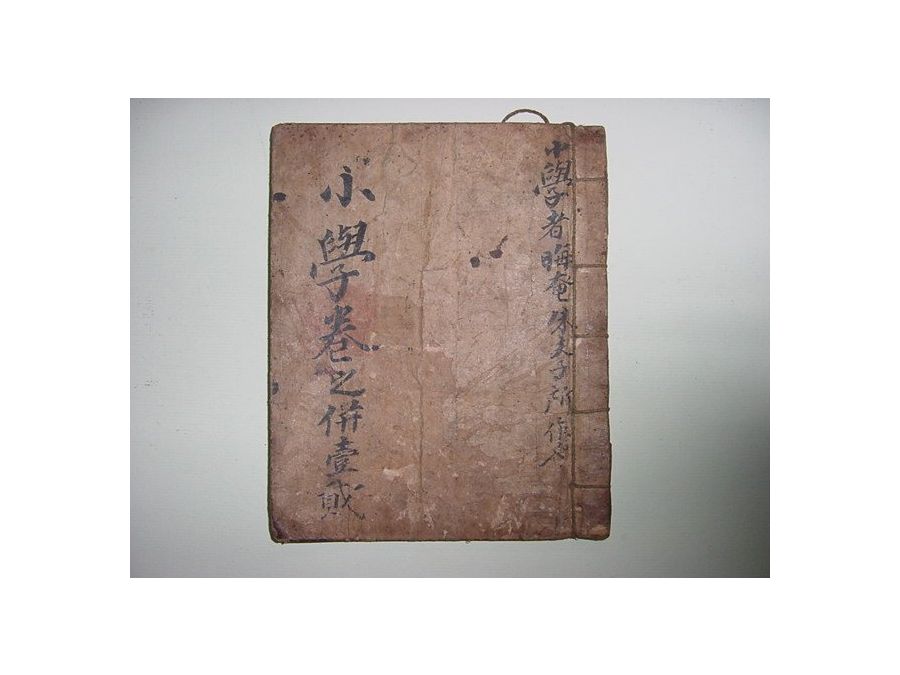 小學者晦菴朱夫子所作也
小學卷之倂壹貳